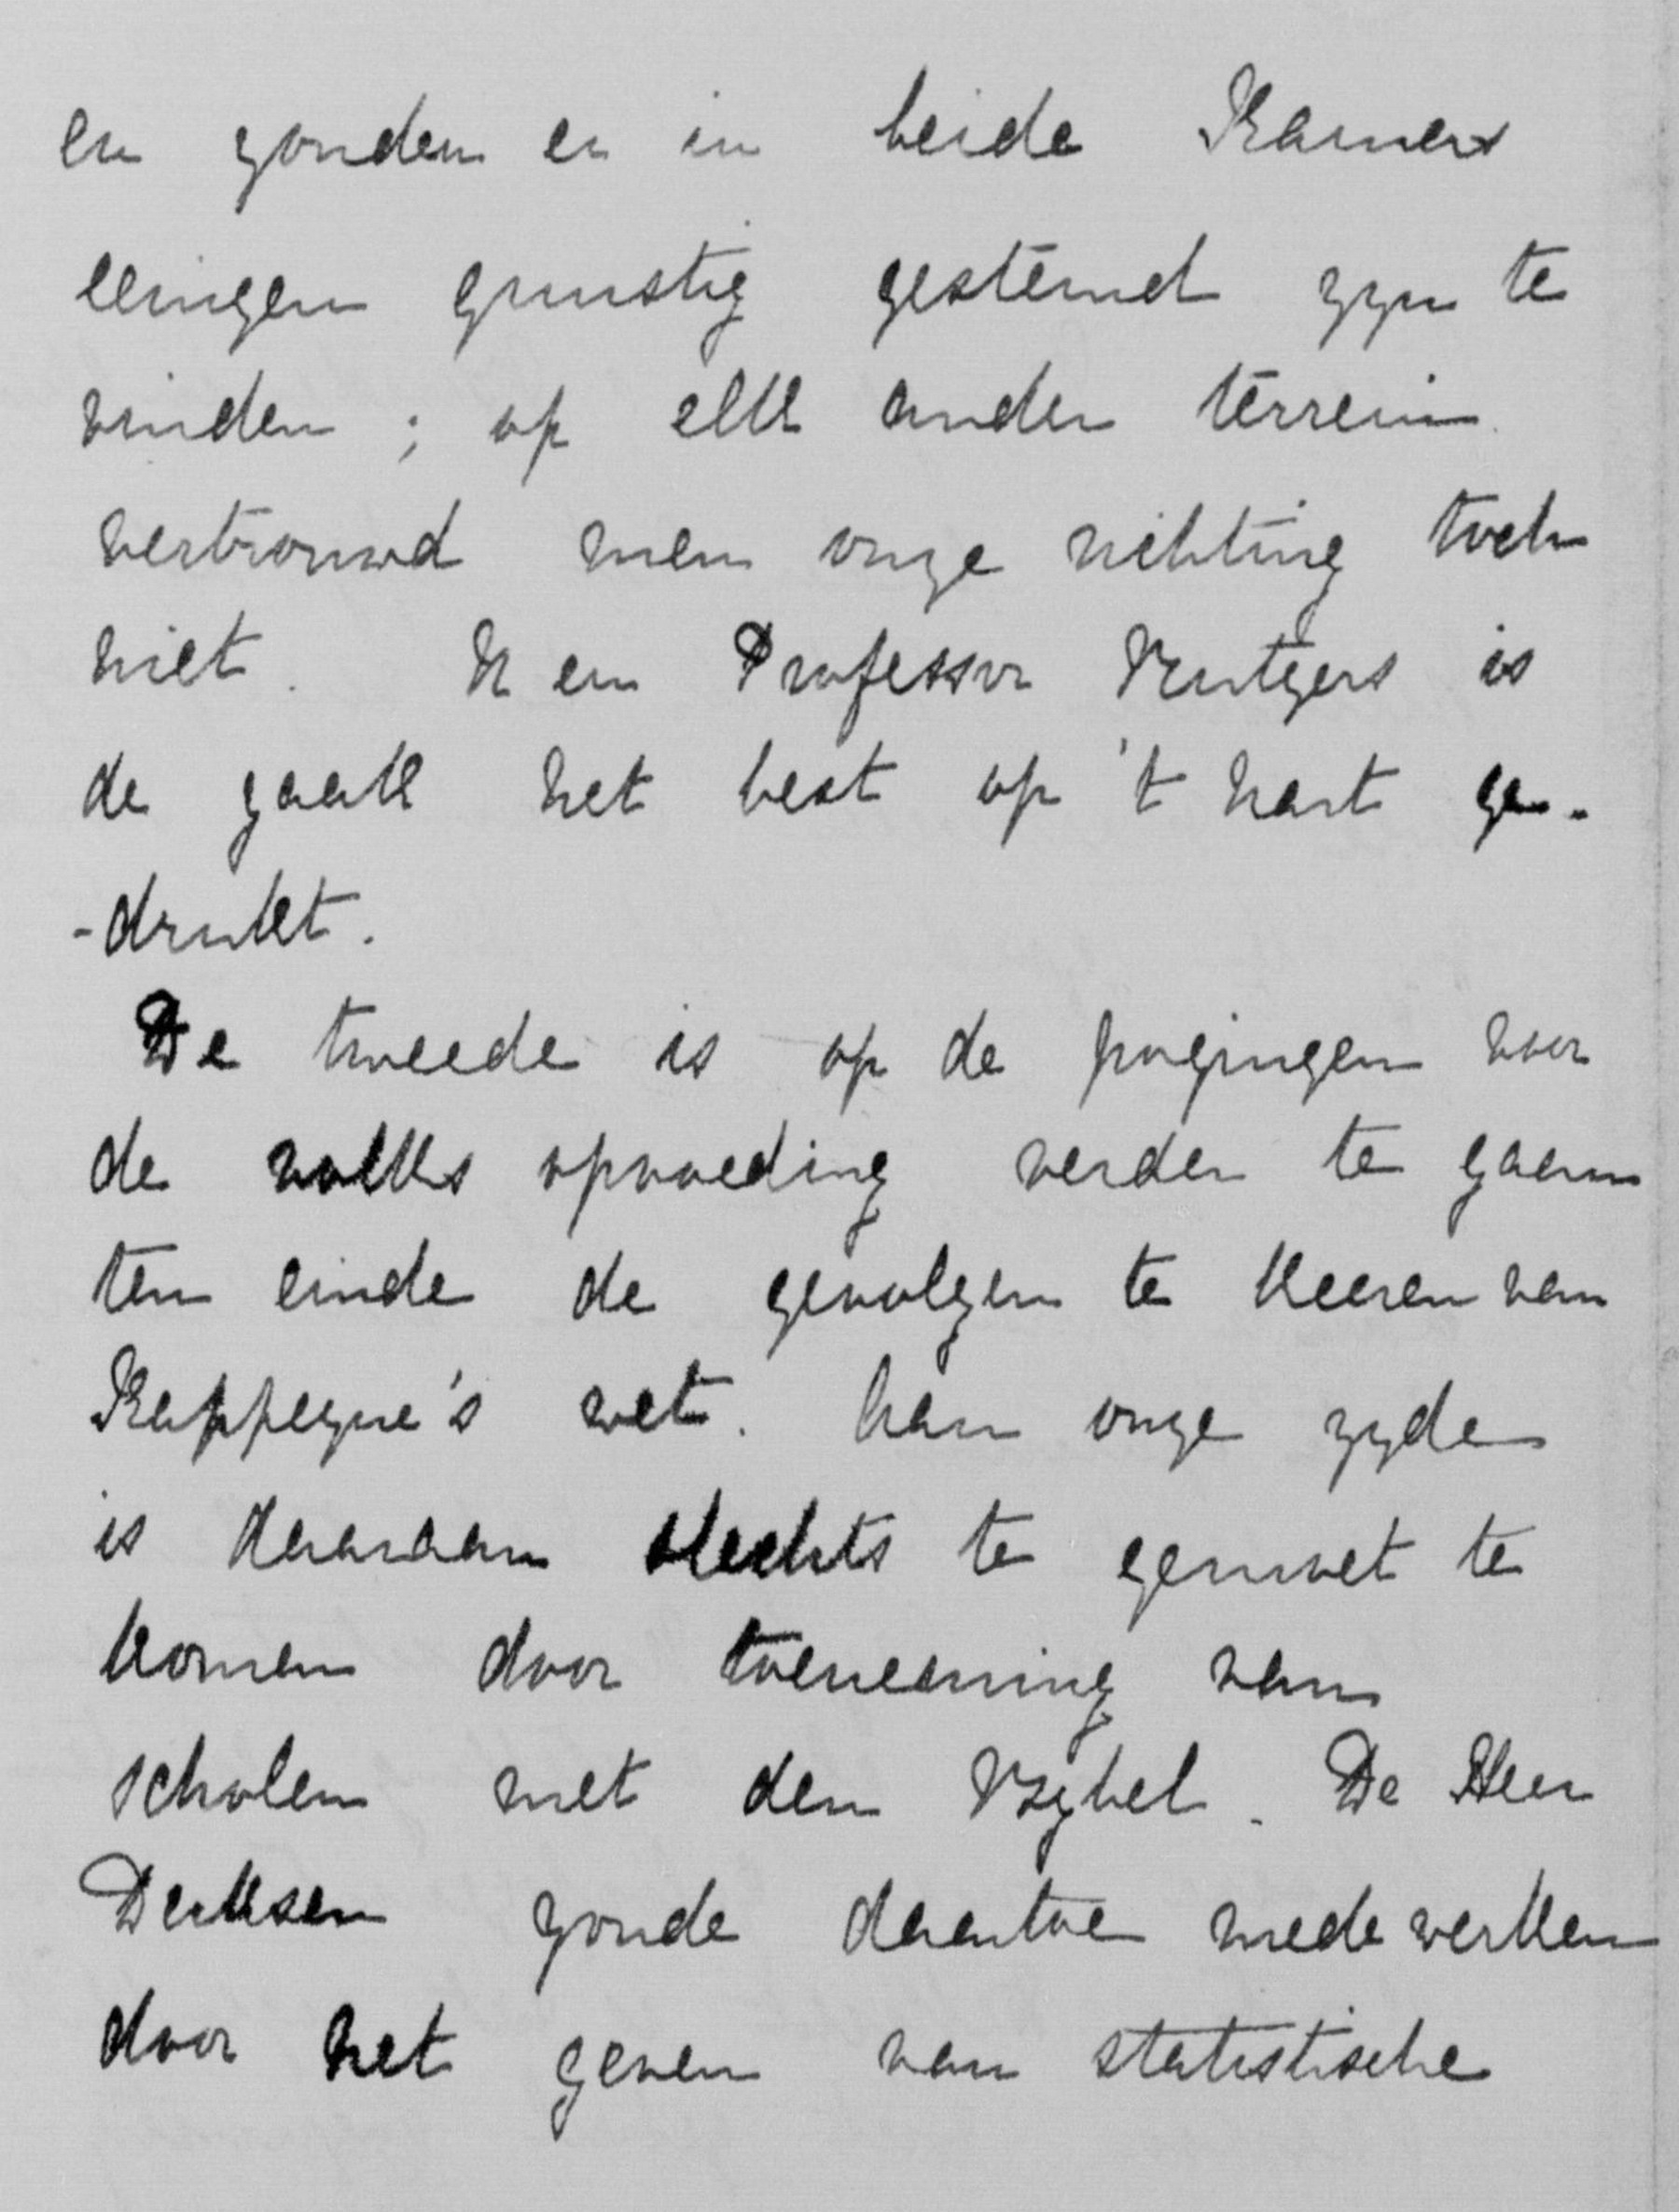 en zouden er in beide Kamers
eenigen gunstig gestemd zyn te
vinden ; op elk ander terrein
vertrouwd men onze richting toch
niet. U en Professor Rutgers is
de zaak het best op 't hart ge-
-drukt.
De tweede is op de pogingen voor
de volks opvoeding verder te gaan
ten einde de gevolgen te keeren van
Kappeyne's wet. Van onze zyde
is daaraan slechts te gemoet te
komen door toeneming van
scholen met den Bybel. De Heer
Derksen zoude daartoe mede werken
door het geven van statistische